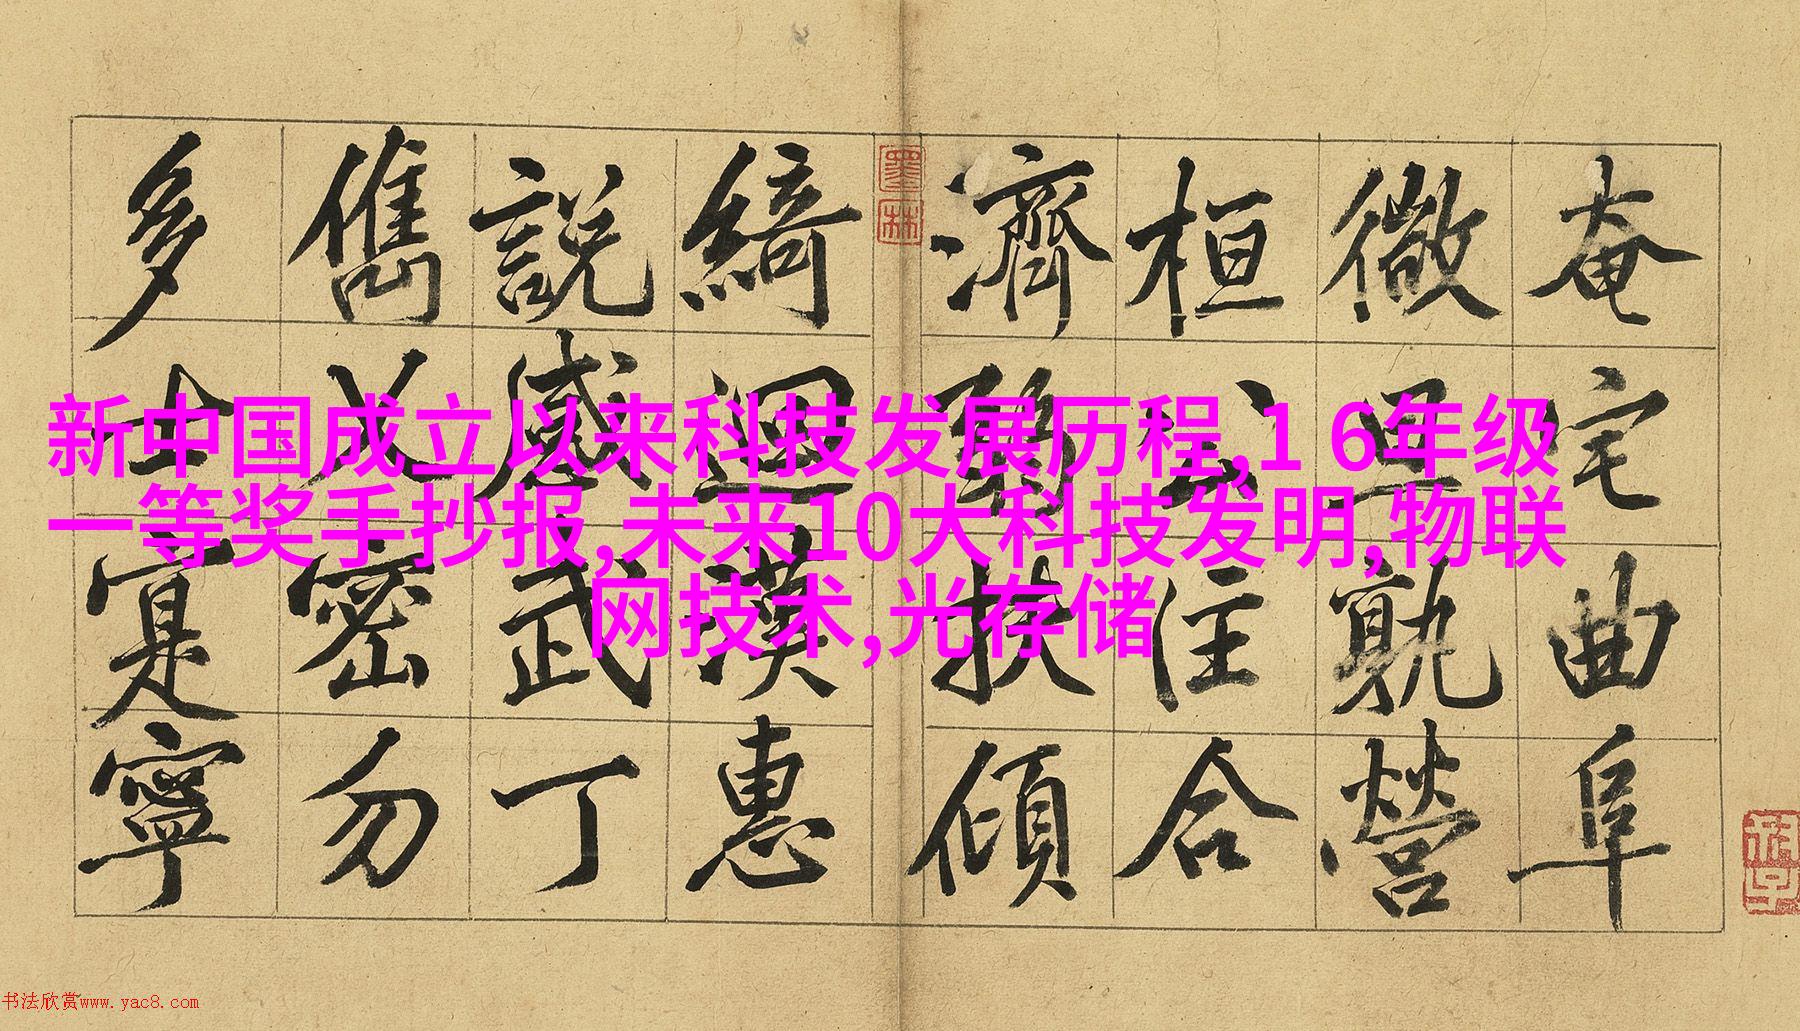 奄宅曲阜
微旦孰營
桓公合
濟弱扶傾
綺迴漢惠
說感武丁
儁乂密勿
多士寔寧
墨林
新中国成立以来科技发展历程,1 6年级
一等奖手抄报,未来10大科技发明,物联
网技术,光存储
书法欣赏www.yac8.com